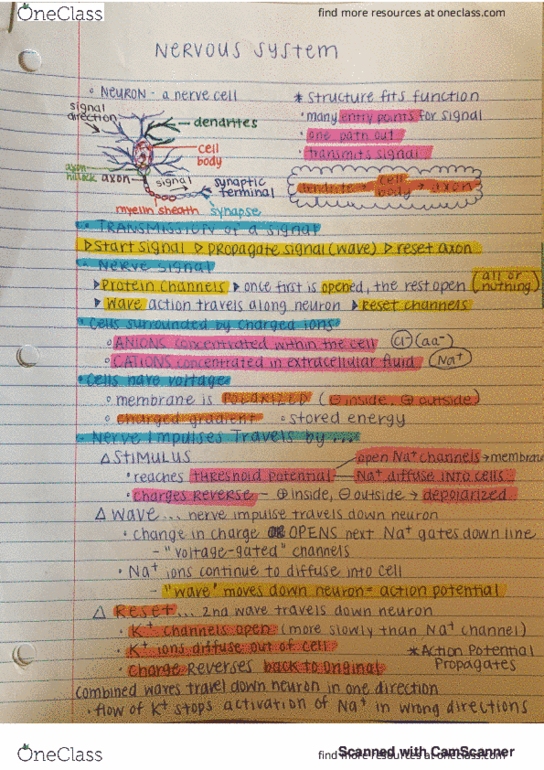 OneClass
find more resources at oneclass.com
NERVOUS SYSTEM
◦ NEURON - a nerve cell
* Structure fits function
signal direction
dendrites
cell body
axon hillock
axon
signal
synaptic terminal
myelin sheath
synapse
• many entry points for signal
• one path out
• transmits signal
dendrite → cell body → axon
• TRANSMISSION of a signal
▷ start signal ▷ propagate signal (wave) ▷ reset axon
• Nerve Signal
▸ Protein channels ▸ once first is opened, the rest open (all or nothing)
▸ wave action travels along neuron ▸ reset channels
• Cells surrounded by charged ions
◦ ANIONS concentrated within the cell (Cl⁻) (aa⁻)
◦ CATIONS concentrated in extracellular fluid (Na⁺)
• Cells have voltage
◦ membrane is POLARIZED (⊖ inside, ⊕ outside)
◦ charged gradient ◦ stored energy
• Nerve Impulses Travels by ...
△ STIMULUS
open Na⁺ channels → membrane
• reaches threshold potential
Na⁺ diffuse INTO cells
• charges REVERSE - ⊕ inside, ⊖ outside → depolarized
△ Wave ... nerve impulse travels down neuron
• change in charge OPENS next Na⁺ gates down line
- "voltage-gated" channels
• Na⁺ ions continue to diffuse into cell
- "wave" moves down neuron = action potential
△ Reset ... 2nd wave travels down neuron
• K⁺ channels open (more slowly than Na⁺ channel)
• K⁺ ions diffuse out of cell
• Charge Reverses back to original
* Action Potential Propagates
combined waves travel down neuron in one direction
• flow of K⁺ stops activation of Na⁺ in wrong directions
OneClass
find more resources at oneclass.com
Scanned with CamScanner